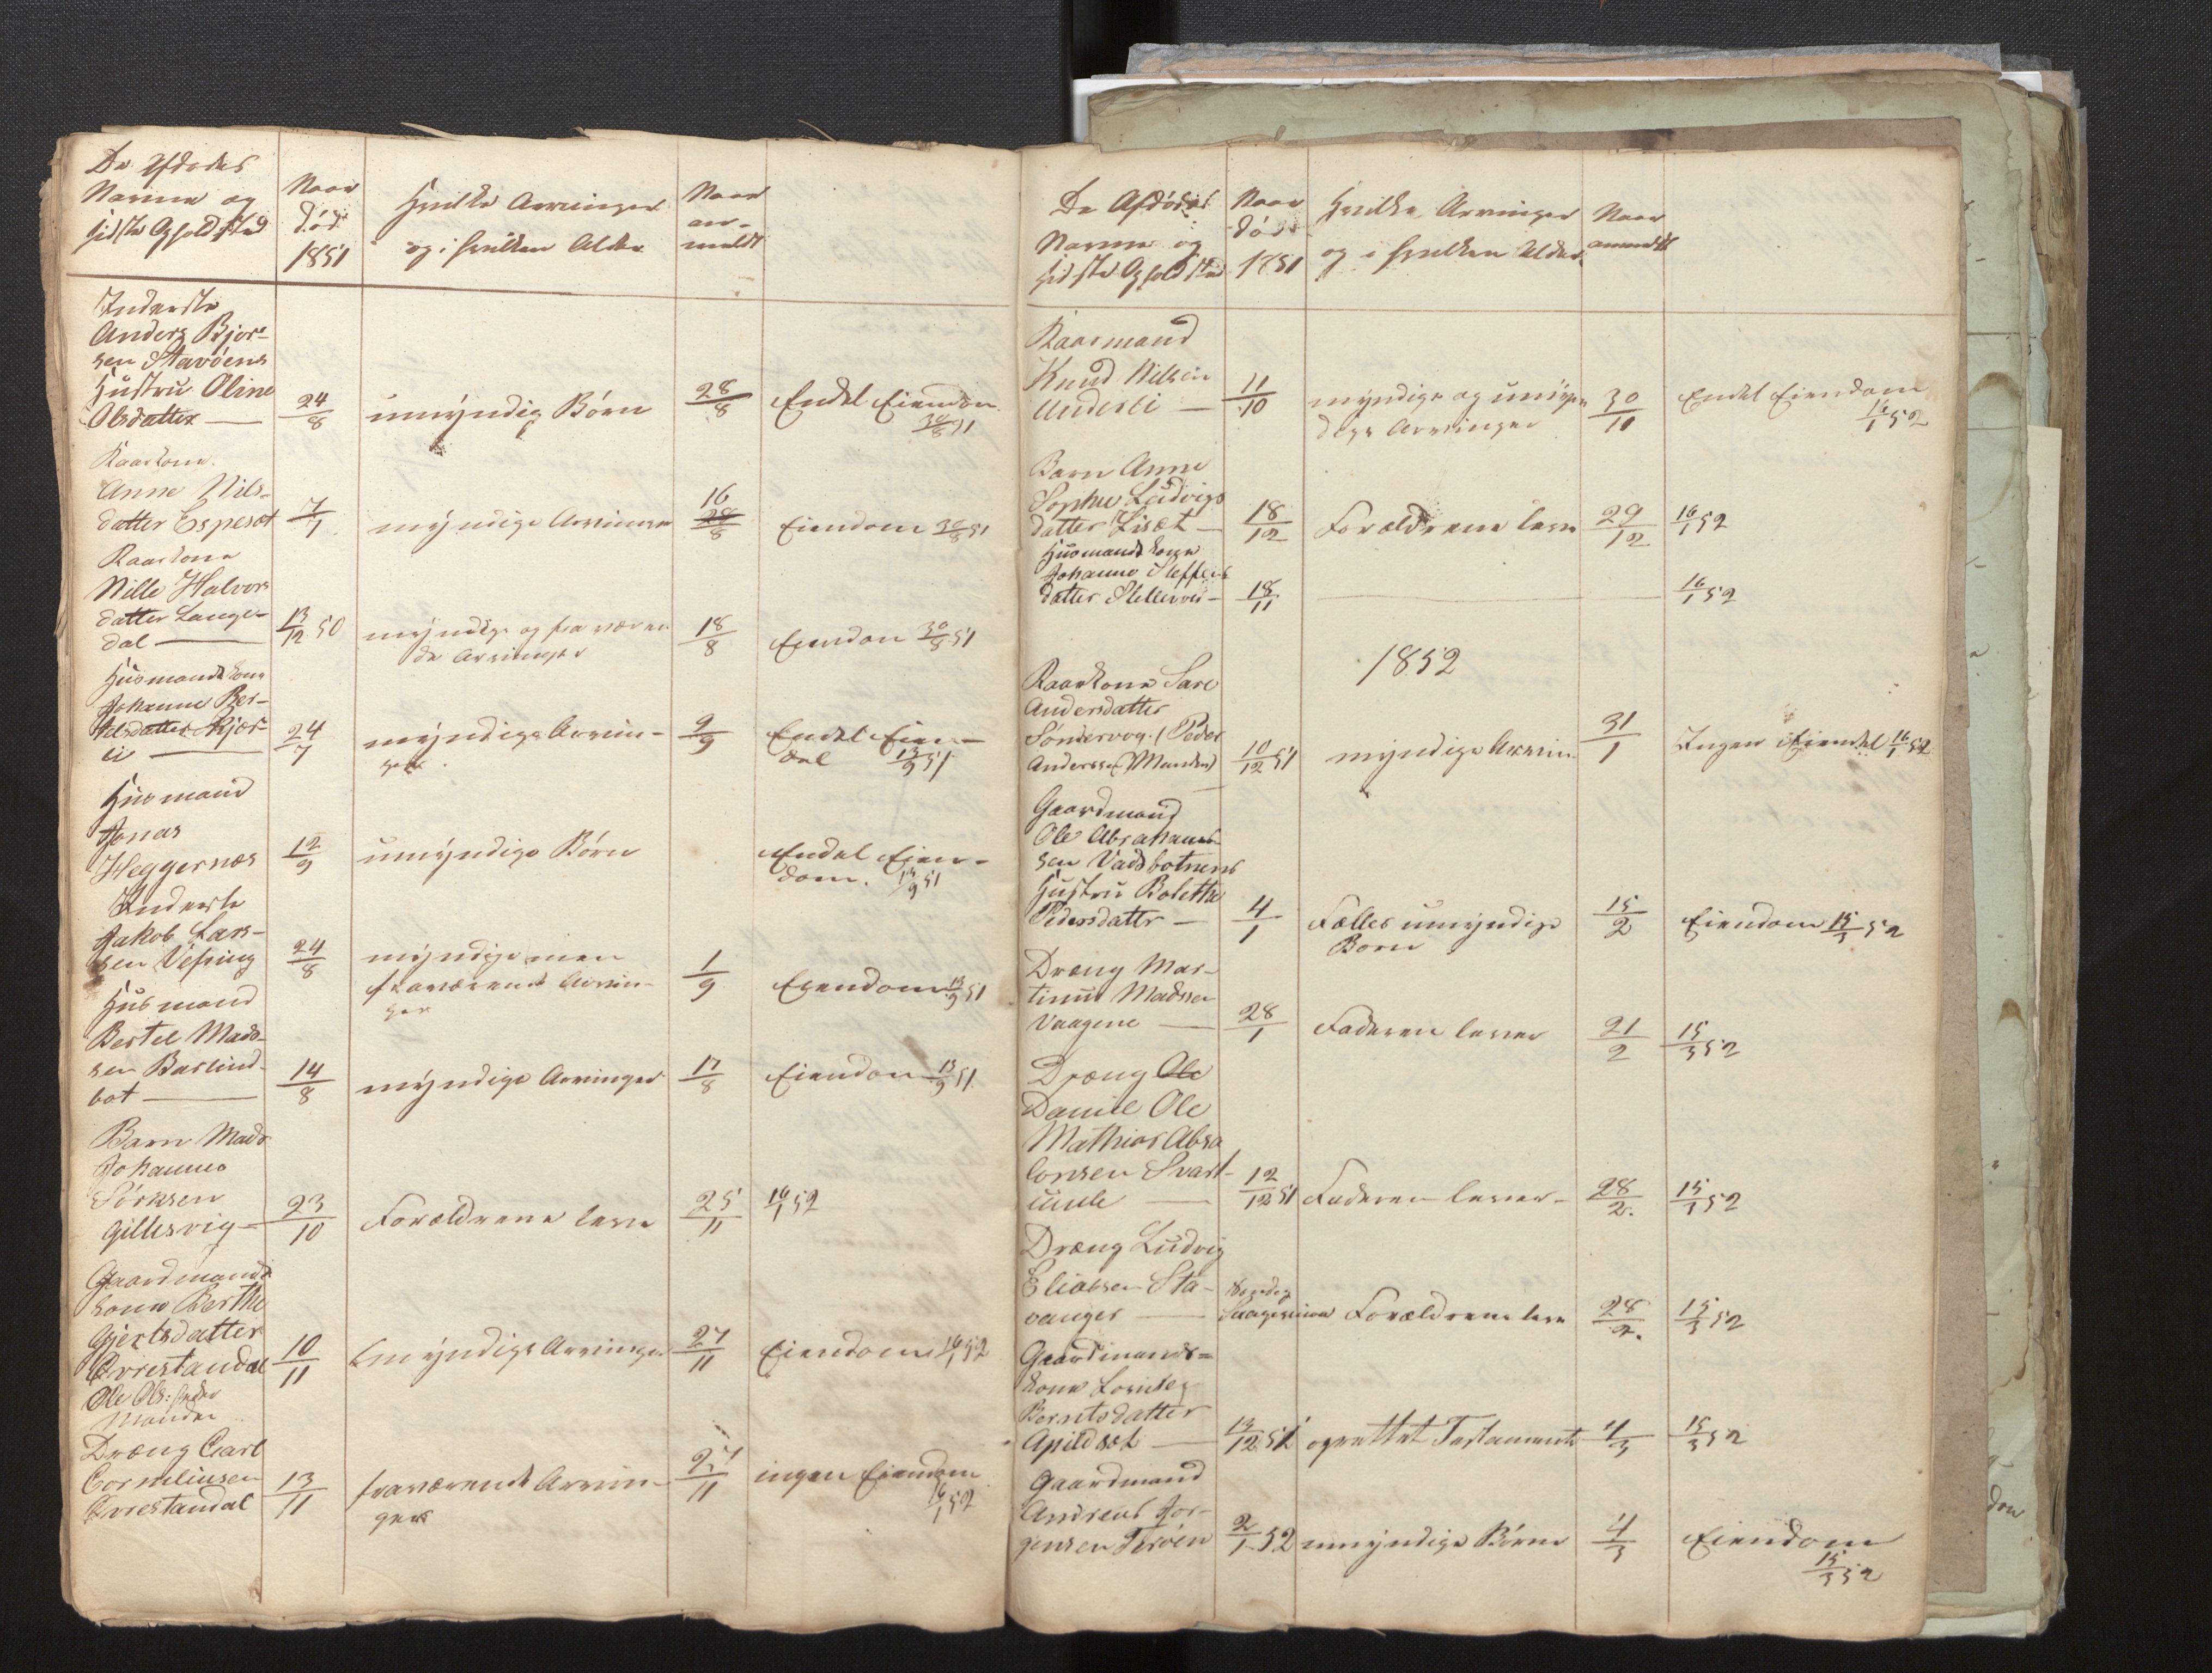 De Afdødes
Navne og
sidste Opholdsted
Naar
død
1851
Hvilke Arvinger
og i hvilken Alder
Naar
an-
meldt
Inderste
Anders Bjor-
sen Stavøens
Hustru Oline
Olsdatter — 24/8 umyndig Børn 28/8 Endel Eiendom
30/8 51
Kaarkone
Anne Nils-
datter Espeset 7/7 myndige Arvinger 16/8 Eiendom 30/8 51
Kaarkone
Nille Halvors
datter Lange-
dal — 13/12 50 myndige og fraværen 18/8 Eiendom 30/8 51
de Arvinger
Husmandskone
Johanne Ber-
telsdatter Kjør-
li — 24/7 myndige Arvin- 9/9 Endel Eien-
ger del 13/9 51
Husmand
Jonas
Heggernæs 12/9 umyndige Børn Endel Eien-
dom. 13/9 51
Inderste
Jakob Lars-
sen Vefring 24/8 myndige men 1/9 Eiendom 13/9 51
fraværende Arvin-
ger
Husmand
Bertel Mads-
sen Barlind-
bot — 14/8 myndige Arvinger 17/8 Eiendom 13/9 51
Barn Mads
Johannes
Sörksen
Gillesvig — 23/10 Forældrene leve 25/11 16/1 52
Gaardmands
kone Berthe
Gjertsdatter
Qvrestandal 10/11 Umyndige Arvinger 27/11 Eiendom 16/1 52
Ole Ols: heder
Manden
Dræng Carl
Corneliusen
Qvrestandal 13/11 fraværende Arvin- 27/11 ingen Eiendom
gere 16/1 52
De Afdødes
Navne og
sidste Opholdsted
Naar
død
1851
Hvilke Arvinger
og i hvilken Alder
Naar
anmeldt
Kaarmand
Knud Nilsen
Underli — 11/10 myndige og umyn 30/11 Endel Eiendom
dige Arvinger 16/1 52
Barn Anne
Sophie Ludvigs
datter Liset — 18/12 Forældrene leve 29/12 16/1 52
Husmandskone
Johanne Steffens
datter — 18/11 — 16/1 52
1852
Kaarkone Sare
Andersdatter
Söndervog. (Peder
Anderssen Manden) 10/12 51 myndige Arvin 31/1 Ingen Eiendel 16/1 52
Gaardmand
Ole Abrahams
sen Vadsbotnens
Hustru Bolethe
Pedersdatter — 4/1 Fælles umyndige 15/2 Eiendom 15/3 52
Børn
Dræng Mar-
tinus Madssen
Vaagene — 28/1 Faderen lever 21/2 15/3 52
Dræng Ole
Daniel Ole
Mathias Absa
lonsen Svart-
— 12/12 51 Faderen lever — 28/2. 15/3 52
Dræng Ludvig
Eliassen Sta-
vanger — Forældrene leve 28/2. 15/3 52
Gaardmands-
kone
Berntsdatter
Apildset — 13/12 51 oprettet Testamente 4/3 15/3 52
Gaardmand
Andreas Jør-
gensen Terøen 2/1 52 umyndige Børn 4/3 Eiendom
15/3 52